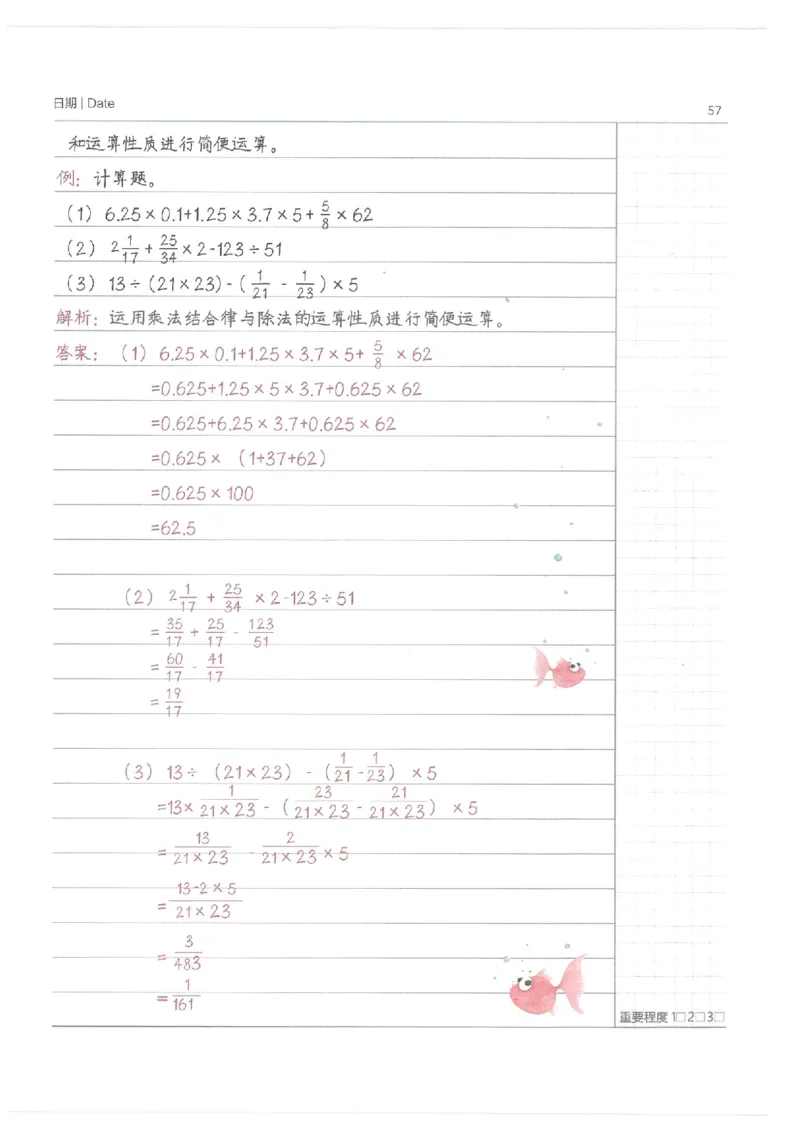 日期 | Date
57
和运算性质进行简便运算。
例：计算题。
（1）6.25×0.1+1.25×3.7×5+5/8×62
（2）2 1/17+25/34×2-123÷51
（3）13÷（21×23）-（1/21-1/23）×5
解析：运用乘法结合律与除法的运算性质进行简便运算。
答案：（1）6.25×0.1+1.25×3.7×5+5/8×62
=0.625+1.25×5×3.7+0.625×62
=0.625+6.25×3.7+0.625×62
=0.625×（1+37+62）
=0.625×100
=62.5
（2）2 1/17+25/34×2-123÷51
=35/17+25/17-123/51
=60/17-41/17
=19/17
（3）13÷（21×23）-（1/21-1/23）×5
=13×1/(21×23)-（23/(21×23)-21/(21×23)）×5
=13/(21×23)-2/(21×23)×5
=(13-2×5)/(21×23)
=3/483
=1/161
重要程度 1□2□3□